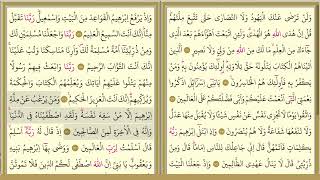 وَلَنْ تَرْضٰى عَنْكَ الْيَهُودُ وَلَا النَّصَارٰى حَتّٰى تَتَّبِعَ مِلَّتَهُمْ
قُلْ اِنَّ هُدَى اللّٰهِ هُوَ الْهُدٰى وَلَئِنِ اتَّبَعْتَ اَهْوَاءَهُمْ بَعْدَ الَّذِى
جَاءَكَ مِنَ الْعِلْمِ مَا لَكَ مِنَ اللّٰهِ مِنْ وَلِىٍّ وَلَا نَصِيرٍ اَلَّذِينَ
اٰتَيْنَاهُمُ الْكِتَابَ يَتْلُونَهُ حَقَّ تِلَاوَتِهِ اُولٰئِكَ يُؤْمِنُونَ بِهِ وَمَنْ
يَكْفُرْ بِهِ فَاُولٰئِكَ هُمُ الْخَاسِرُونَ يَا بَنِى اِسْرَائِيلَ اذْكُرُوا
نِعْمَتِىَ الَّتِى اَنْعَمْتُ عَلَيْكُمْ وَاَنِّى فَضَّلْتُكُمْ عَلَى الْعَالَمِينَ
وَاتَّقُوا يَوْمًا لَا تَجْزِى نَفْسٌ عَنْ نَفْسٍ شَيْئًا وَلَا يُقْبَلُ مِنْهَا عَدْلٌ
وَلَا تَنْفَعُهَا شَفَاعَةٌ وَلَا هُمْ يُنْصَرُونَ وَاِذِ ابْتَلٰى اِبْرٰهِيمَ رَبُّهُ
بِكَلِمَاتٍ فَاَتَمَّهُنَّ قَالَ اِنِّى جَاعِلُكَ لِلنَّاسِ اِمَامًا قَالَ وَمِنْ
ذُرِّيَّتِى قَالَ لَا يَنَالُ عَهْدِى الظَّالِمِينَ وَاِذْ جَعَلْنَا الْبَيْتَ
وَاِذْ يَرْفَعُ اِبْرٰهِيمُ الْقَوَاعِدَ مِنَ الْبَيْتِ وَاِسْمٰعِيلُ رَبَّنَا تَقَبَّلْ
مِنَّا اِنَّكَ اَنْتَ السَّمِيعُ الْعَلِيمُ رَبَّنَا وَاجْعَلْنَا مُسْلِمَيْنِ لَكَ
وَمِنْ ذُرِّيَّتِنَا اُمَّةً مُسْلِمَةً لَكَ وَاَرِنَا مَنَاسِكَنَا وَتُبْ عَلَيْنَا
اِنَّكَ اَنْتَ التَّوَّابُ الرَّحِيمُ رَبَّنَا وَابْعَثْ فِيهِمْ رَسُولًا
مِنْهُمْ يَتْلُوا عَلَيْهِمْ اٰيَاتِكَ وَيُعَلِّمُهُمُ الْكِتَابَ وَالْحِكْمَةَ
وَيُزَكِّيهِمْ اِنَّكَ اَنْتَ الْعَزِيزُ الْحَكِيمُ وَمَنْ يَرْغَبُ عَنْ مِلَّةِ
اِبْرٰهِيمَ اِلَّا مَنْ سَفِهَ نَفْسَهُ وَلَقَدِ اصْطَفَيْنَاهُ فِى الدُّنْيَا
وَاِنَّهُ فِى الْاٰخِرَةِ لَمِنَ الصَّالِحِينَ اِذْ قَالَ لَهُ رَبُّهُ
اَسْلِمْ قَالَ اَسْلَمْتُ لِرَبِّ الْعَالَمِينَ وَوَصّٰى بِهَا اِبْرٰهِيمُ بَنِيهِ
وَيَعْقُوبُ يَا بَنِىَّ اِنَّ اللّٰهَ اصْطَفٰى لَكُمُ الدِّينَ فَلَا تَمُوتُنَّ